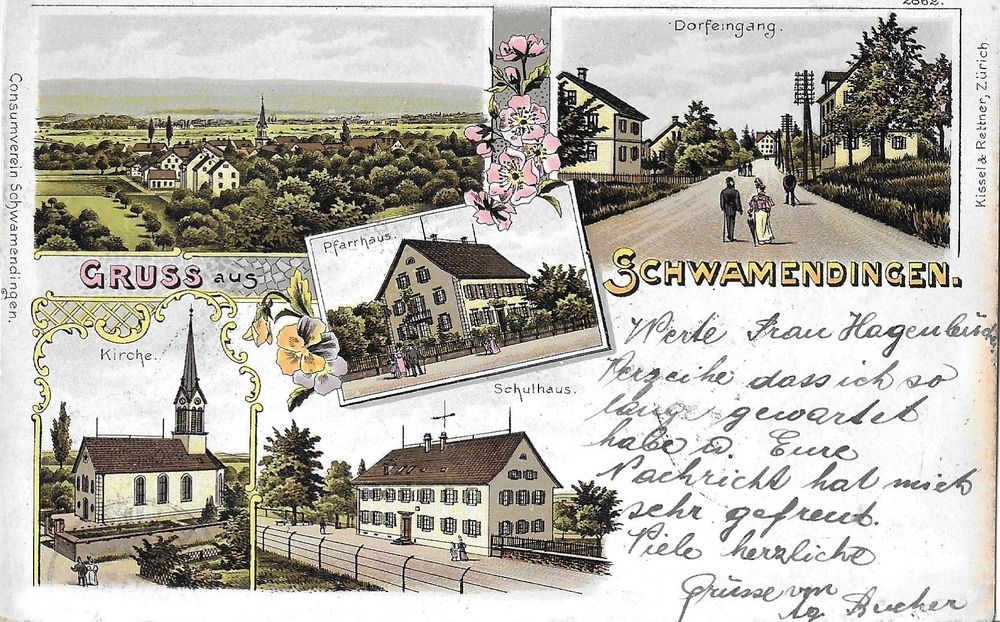 2862.
Dorfeingang.
Consumverein Schwamendingen.
Kissel & Rettner, Zürich
Pfarrhaus.
GRUSS aus
SCHWAMENDINGEN.
Kirche.
Schulhaus.
Werte Frau
Verzeihe dass ich so
lange gewartet
habe u. Eure
Nachricht hat mich
sehr gefreut.
Viele herzliche
Grüsse von
Bucher